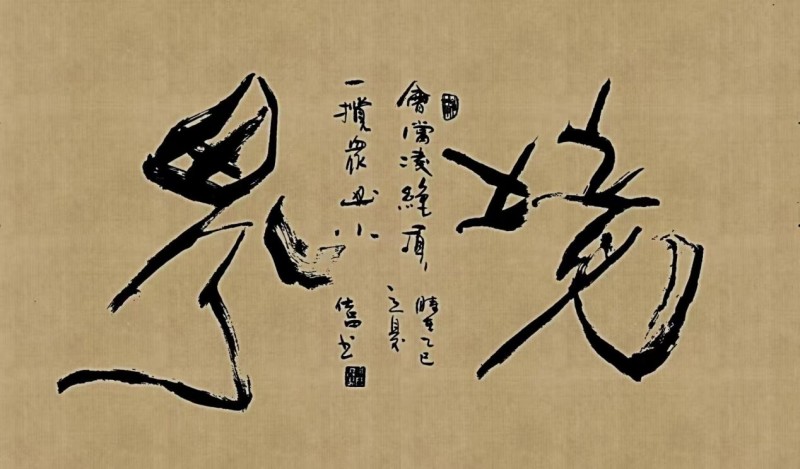 境界
會當凌絕頂
一攬眾山小
時在乙巳
之夏
書